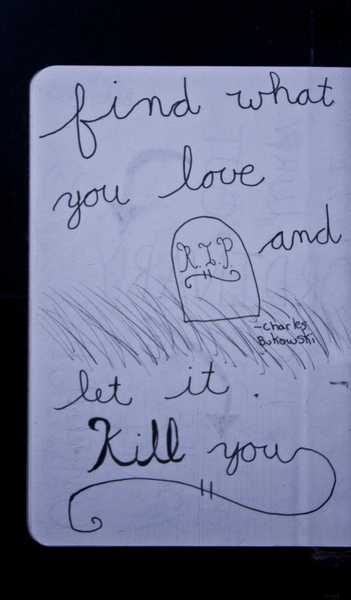 find what
you love
R.I.P
and
-Charles
Bukowski
let it.
Kill you